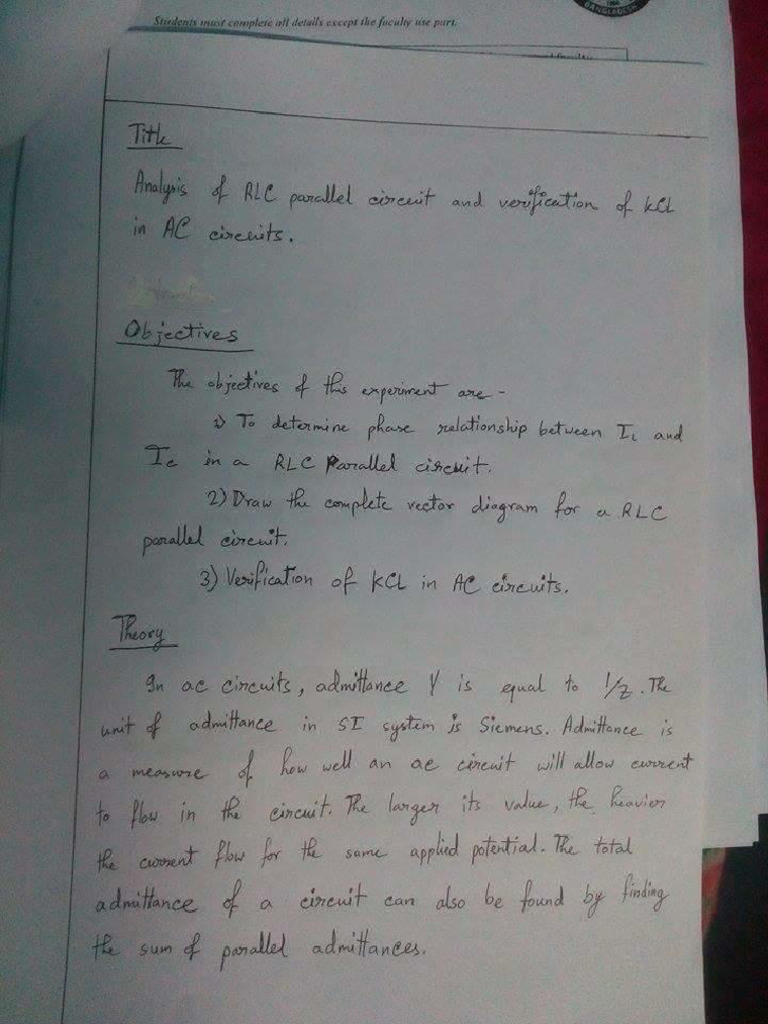 BANGLADESH
Students must complete all details except the faculty use part.
Title
Analysis of RLC parallel circuit and verification of KCL
in AC circuits.
Objectives
The objectives of this experiment are -
1) To determine phase relationship between IL and
Ic in a RLC Parallel circuit.
2) Draw the complete vector diagram for a RLC
parallel circuit.
3) Verification of KCL in AC circuits.
Theory
In ac circuits, admittance Y is equal to 1/Z. The
unit of admittance in SI system is Siemens. Admittance is
a measure of how well an ac circuit will allow current
to flow in the circuit. The larger its value, the heavier
the current flow for the same applied potential. The total
admittance of a circuit can also be found by finding
the sum of parallel admittances.